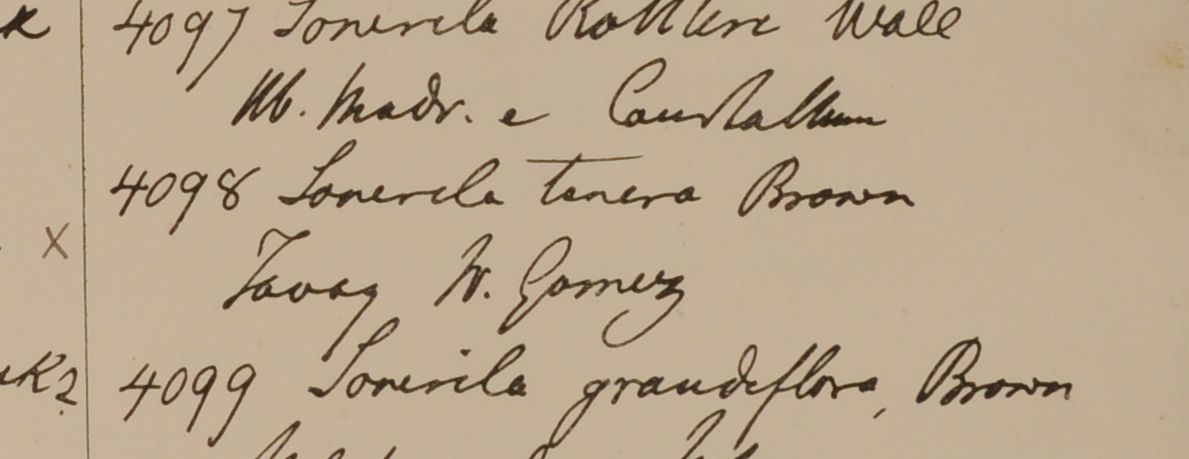 k 4097 Sonerila Rottleri Wall
Hb. Madr. e Courtallum
4098 Sonerila tenera Brown
X
Tavoy W. Gomez
4099 Sonerila grandiflora, Brown